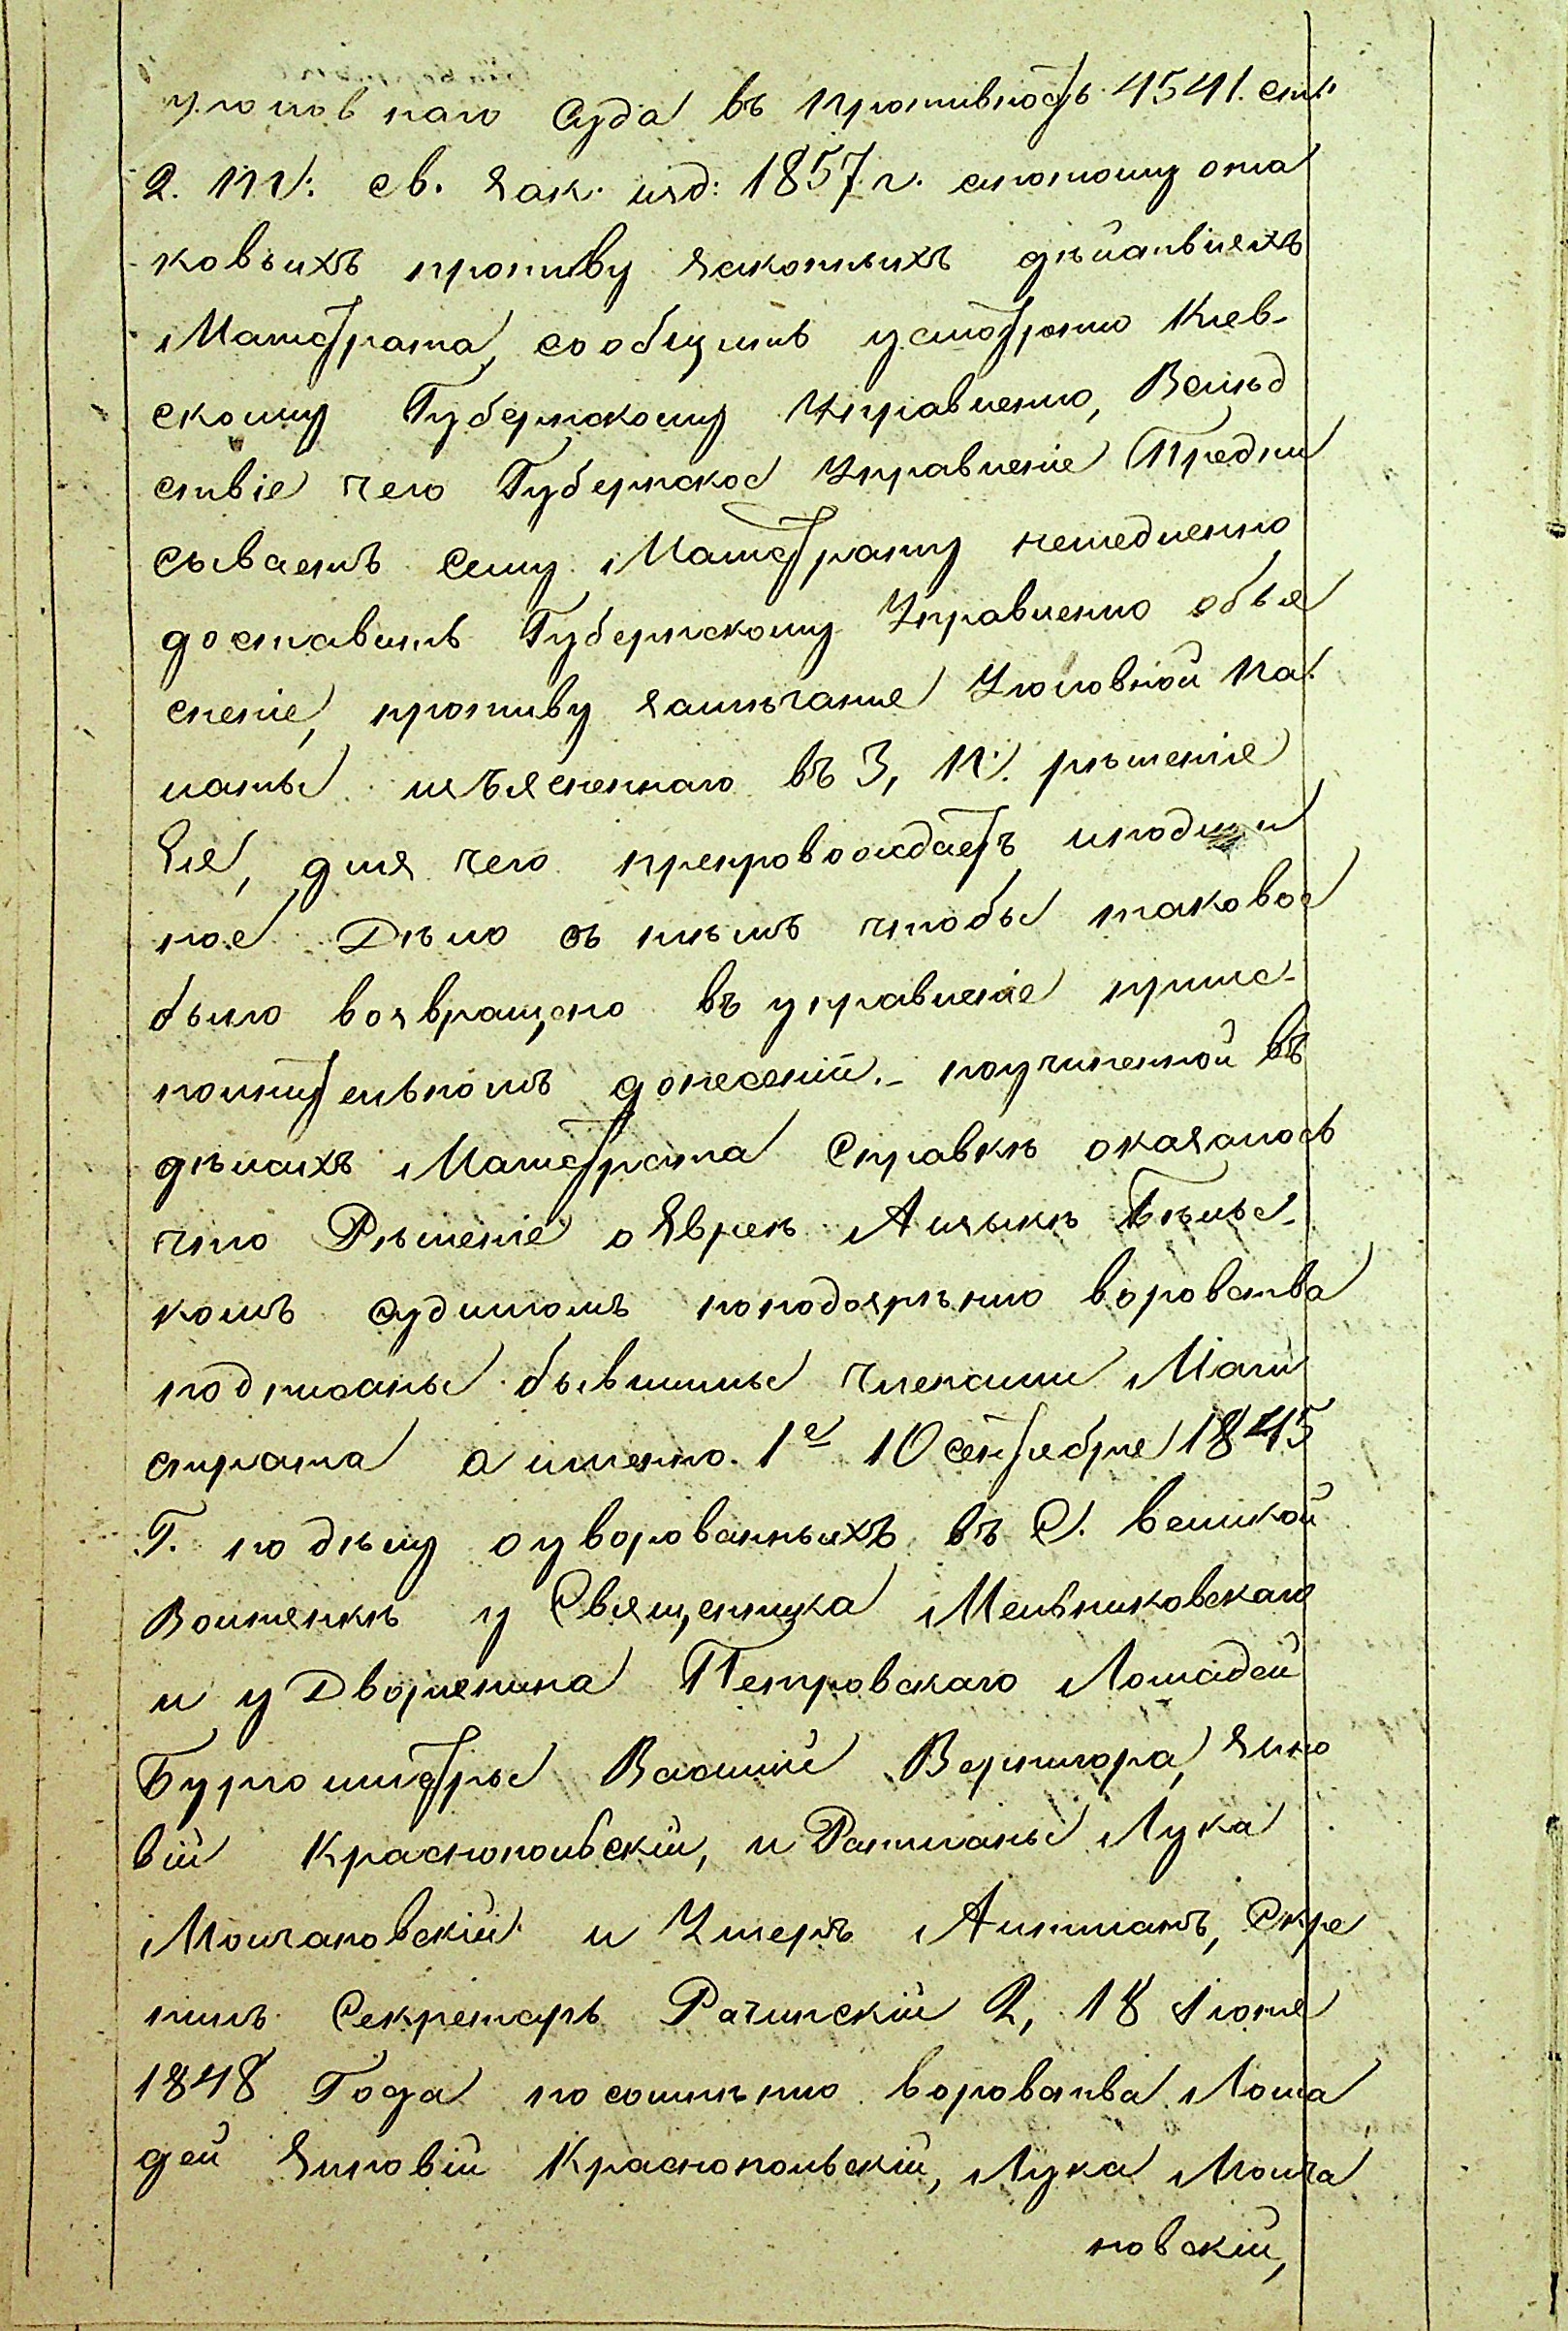 уголовнаго Суда въ противность 4541. ст:
2. ч. св. Зак: изд: 1857 г. апотому ота
ковыхъ противу законныхъ дѣйствіяхъ
Магистрата, сообщить усмотрѣнію Кіев-
скому Губернскому Управленію, Вслѣд
ствіе чего Губернское Управленіе Предпи
сываетъ сему Магистрату немедленно
доставить Губернскому Управленію объя
сненіе, противу замѣчанія Уголовной Па
латы изъясненнаго въ 3, п. рѣшенія
Ея, для чего препровождаетъ иподлин
ное Дѣло съ тѣмъ чтобы таковое
было возвращено въ управленіе прис-
полнительномъ донесеніи. – поучиненной въ
дѣлахъ Магистрата Справкѣ оказалось
что Рѣшеніе о Евреѣ Айзыкѣ Бѣлыс-
комъ судимомъ поподозрѣнію воровства
подписаны бывшими членами Маги
страта а именно. 1е 10 сентебря 1845
Г. подѣлу оуворованныхъ въ С. великой
Вольшенкѣ у Священика Мельниковскаго
и у Дворянина Петровскаго Лошадей
Бургомистры Василій Вернигора, Зино
вій Краснопольскій, и Ратманы Лука
Молчановскій и Умеръ Липманъ, Скре
пилъ Секретарь Рачинскій 2, 18 Іюня
1848 Года посомнѣнію воровства Лоша
дей Зиновій Краснопольскій, Лука Молча
новскій,